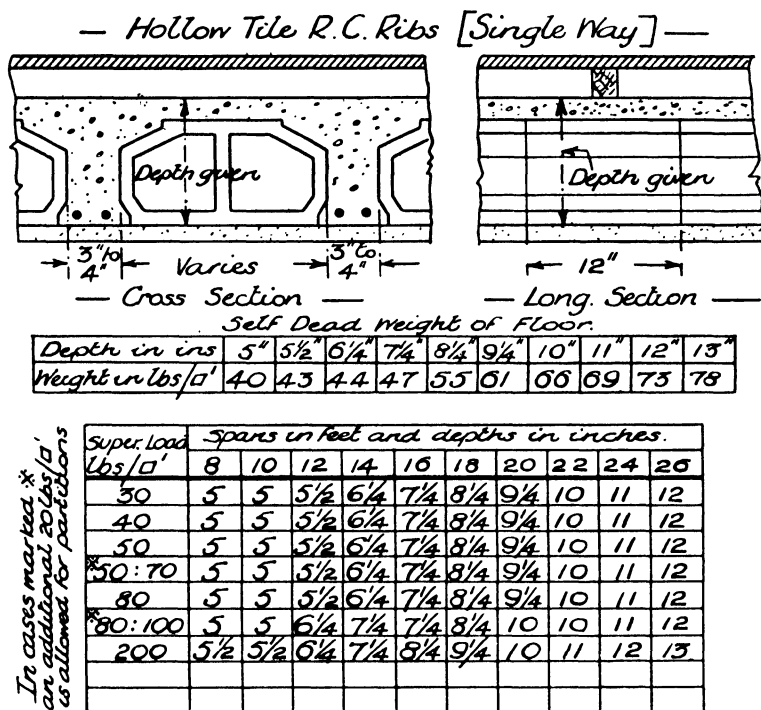 — Hollow Tile R.C. Ribs [Single Way] —
Depth given
Depth given
3" to 4"
Varies
3" to 4"
12"
— Cross Section —
— Long. Section —
Self Dead Weight of Floor.
Depth in ins 5" 5½" 6¼" 7¼" 8¼" 9¼" 10" 11" 12" 13"
Weight in lbs/□' 40 43 44 47 55 61 66 69 73 78
In cases marked *
an additional 20 lbs/□'
is allowed for partitions
Super. Load Spans in feet and depths in inches.
lbs/□' 8 10 12 14 16 18 20 22 24 26
30 5 5 5½ 6¼ 7¼ 8¼ 9¼ 10 11 12
40 5 5 5½ 6¼ 7¼ 8¼ 9¼ 10 11 12
50 5 5 5½ 6¼ 7¼ 8¼ 9¼ 10 11 12
*50:70 5 5 5½ 6¼ 7¼ 8¼ 9¼ 10 11 12
80 5 5 5½ 6¼ 7¼ 8¼ 9¼ 10 11 12
*80:100 5 5 6¼ 7¼ 7¼ 8¼ 10 10 11 12
200 5½ 5½ 6¼ 7¼ 8¼ 9¼ 10 11 12 13